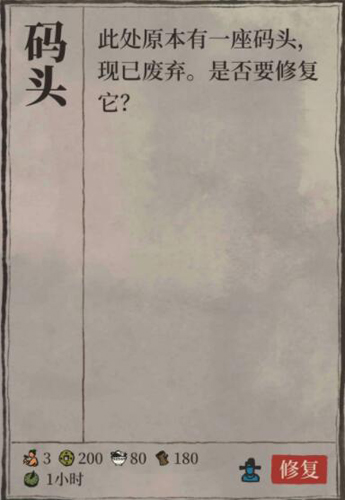 码头
此处原本有一座码头,
现已废弃。是否要修复
它?
3 200 80 180
1小时
修复